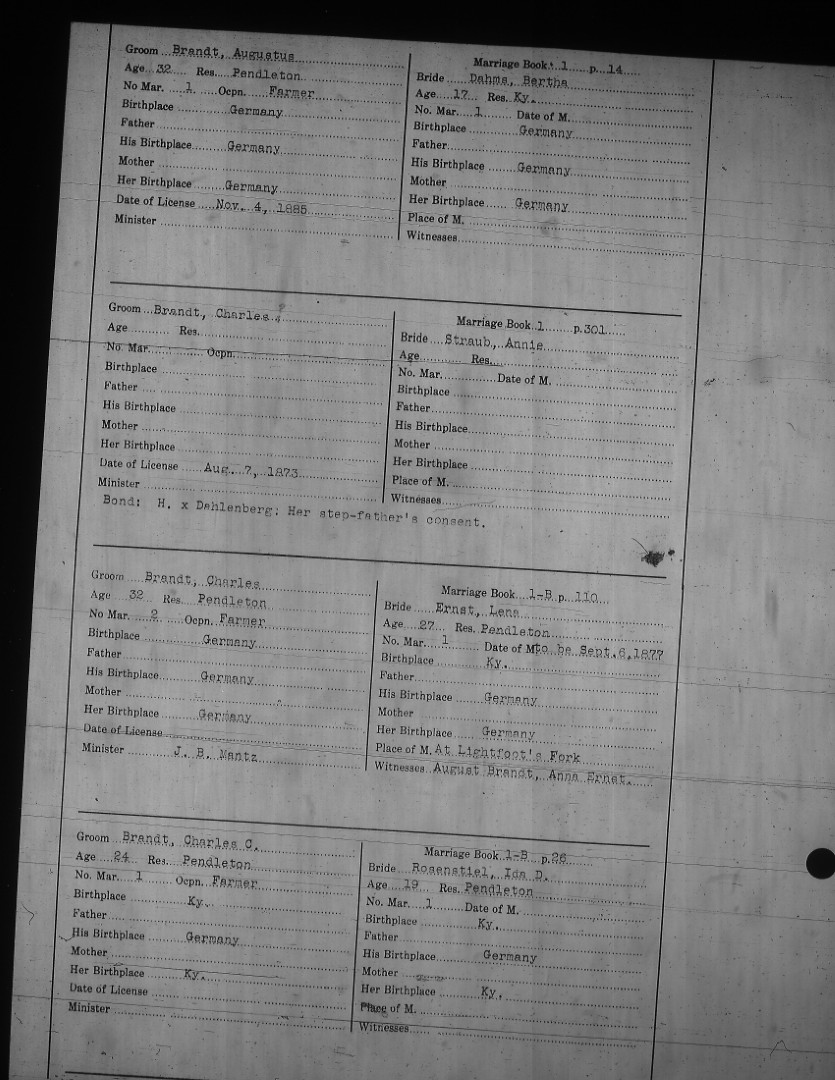 Groom Brandt, Augustus
Age 32 Res. Pendleton
No Mar. 1 Ocpn. Farmer
Birthplace Germany
Father
His Birthplace Germany
Mother
Her Birthplace Germany
Date of License Nov. 4, 1885
Minister
Marriage Book 1 p. 14
Bride Dahms, Bertha
Age 17 Res. Ky.
No. Mar. 1 Date of M.
Birthplace Germany
Father
His Birthplace Germany
Mother
Her Birthplace Germany
Place of M.
Witnesses
Groom Brandt, Charles
Age Res.
No. Mar. Ocpn.
Birthplace
Father
His Birthplace
Mother
Her Birthplace
Date of License Aug. 7, 1873
Minister
Marriage Book 1 p. 301
Bride Straub, Annie
Age Res.
No. Mar. Date of M.
Birthplace
Father
His Birthplace
Mother
Her Birthplace
Place of M.
Witnesses
Bond: H. x Dahlenberg; Her step-father's consent.
Groom Brandt, Charles
Age 32 Res. Pendleton
No Mar. 2 Ocpn. Farmer
Birthplace Germany
Father
His Birthplace Germany
Mother
Her Birthplace Germany
Date of License
Minister J. B. Mantz
Marriage Book 1-B p. 110
Bride Ernst, Lena
Age 27 Res. Pendleton
No. Mar. 1 Date of M. to be Sept. 6, 1877
Birthplace Ky.
Father
His Birthplace Germany
Mother
Her Birthplace Germany
Place of M. At Lightfoot's Fork
Witnesses August Brandt, Anna Ernst.
Groom Brandt, Charles C.
Age 24 Res. Pendleton
No. Mar. 1 Ocpn. Farmer
Birthplace Ky.
Father
His Birthplace Germany
Mother
Her Birthplace Ky.
Date of License
Minister
Marriage Book 1-B p. 26
Bride Rosenstiel, Ida D.
Age 19 Res. Pendleton
No. Mar. 1 Date of M.
Birthplace Ky.
Father
His Birthplace Germany
Mother
Her Birthplace Ky.
Place of M.
Witnesses